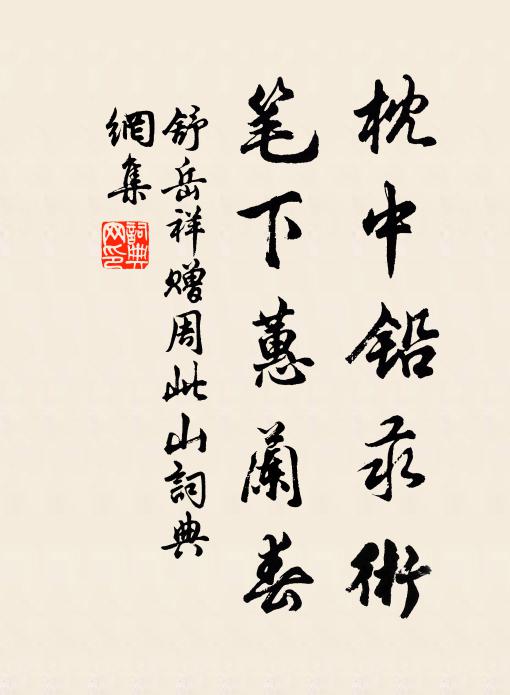 枕中鉛汞術
笔下蕙蘭春
舒岳祥贈周此山詞典
網集
詞典網印